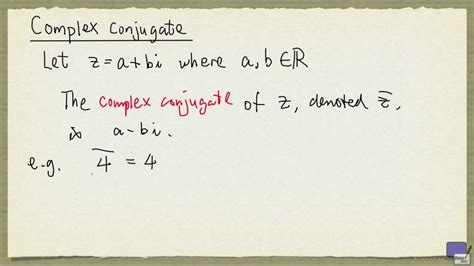 Complex Conjugate
Let z = a + bi where a, b ∈ ℝ
The complex conjugate of z, denoted z̅,
is a - bi.
e.g. 4̅ = 4